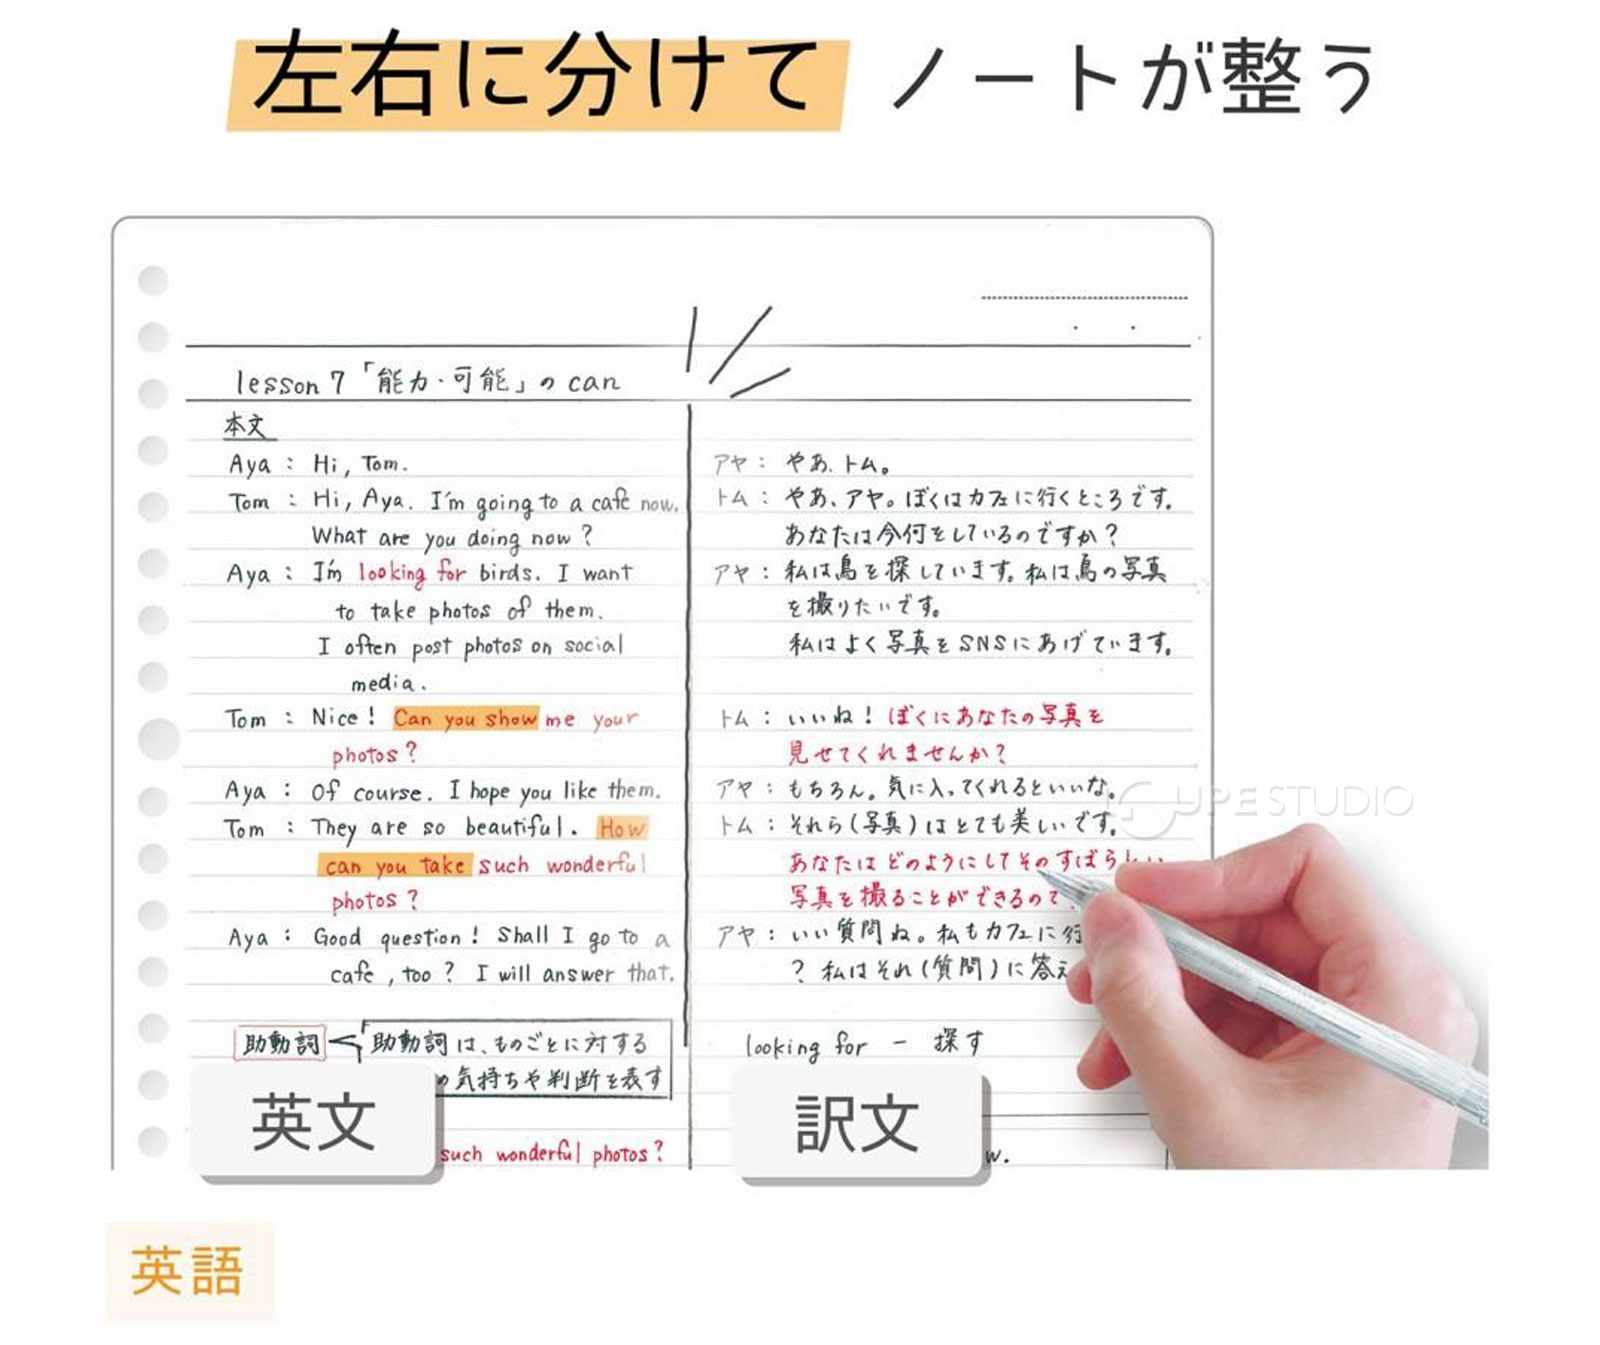 左右に分けて ノートが整う
lesson 7「能力・可能」のcan
本文
Aya : Hi, Tom.
Tom : Hi, Aya. I'm going to a cafe now.
What are you doing now?
Aya : I'm looking for birds. I want
to take photos of them.
I often post photos on social
media.
Tom : Nice! Can you show me your
photos?
Aya : Of course. I hope you like them.
Tom : They are so beautiful. How
can you take such wonderful
photos?
Aya : Good question! Shall I go to a
cafe, too? I will answer that.
助動詞 助動詞は、ものごとに対する
の気持ちや判断を表す
such wonderful photos?
英文
アヤ: やあ、トム。
トム: やあ、アヤ。ぼくはカフェに行くところです。
あなたは今何をしているのですか?
アヤ: 私は鳥を探しています。私は鳥の写真
を撮りたいです。
私はよく写真をSNSにあげています。
トム: いいね! ぼくにあなたの写真を
見せてくれませんか?
アヤ: もちろん。気に入ってくれるといいな。
トム: それら(写真)はとても美しいです。
あなたはどのようにしてそのすばらしい
写真を撮ることができるので
アヤ: いい質問ね。私もカフェに行
? 私はそれ(質問)に答え
looking for - 探す
w.
訳文
UPE STUDIO
英語